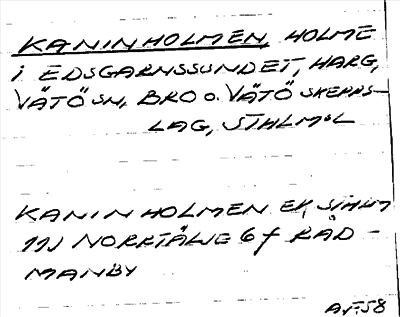 KANINHOLMEN, HOLME
I EDSGARNSSUNDET, HARG,
VÄTÖ SN, BRO O. VÄTÖ SKEPPS-
LAG, STHLMSL
KANINHOLMEN EK, STHLM
11J NORRTÄLJE 6f RÅD-
MANBY
AF.58